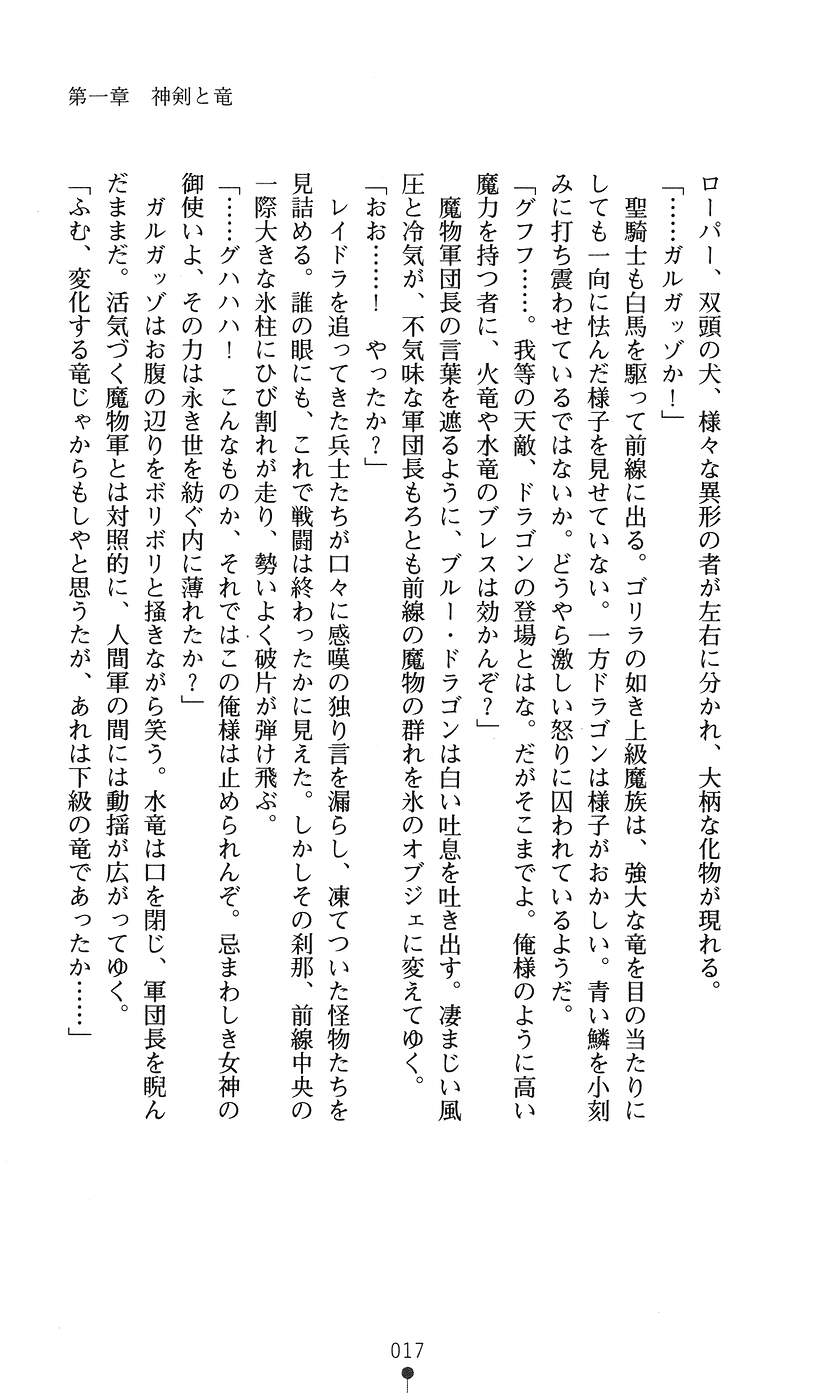 第一章　神剣と竜
ローパー、双頭の犬、様々な異形の者が左右に分かれ、大柄な化物が現れる。
「……ガルガッゾか！」
　聖騎士も白馬を駆って前線に出る。ゴリラの如き上級魔族は、強大な竜を目の当たりに
しても一向に怯んだ様子を見せていない。一方ドラゴンは様子がおかしい。青い鱗を小刻
みに打ち震わせているではないか。どうやら激しい怒りに囚われているようだ。
「グフフ……。我等の天敵、ドラゴンの登場とはな。だがそこまでよ。俺様のように高い
魔力を持つ者に、火竜や水竜のブレスは効かんぞ？」
　魔物軍団長の言葉を遮るように、ブルー・ドラゴンは白い吐息を吐き出す。凄まじい風
圧と冷気が、不気味な軍団長もろとも前線の魔物の群れを氷のオブジェに変えてゆく。
「おお……！　やったか？」
　レイドラを追ってきた兵士たちが口々に感嘆の独り言を漏らし、凍てついた怪物たちを
見詰める。誰の眼にも、これで戦闘は終わったかに見えた。しかしその刹那、前線中央の
一際大きな氷柱にひび割れが走り、勢いよく破片が弾け飛ぶ。
「……グハハハ！　こんなものか、それではこの俺様は止められんぞ。忌まわしき女神の
御使いよ、その力は永き世を紡ぐ内に薄れたか？」
　ガルガッゾはお腹の辺りをボリボリと掻きながら笑う。水竜は口を閉じ、軍団長を睨ん
だままだ。活気づく魔物軍とは対照的に、人間軍の間には動揺が広がってゆく。
「ふむ、変化する竜じゃからもしやと思うたが、あれは下級の竜であったか……」
017